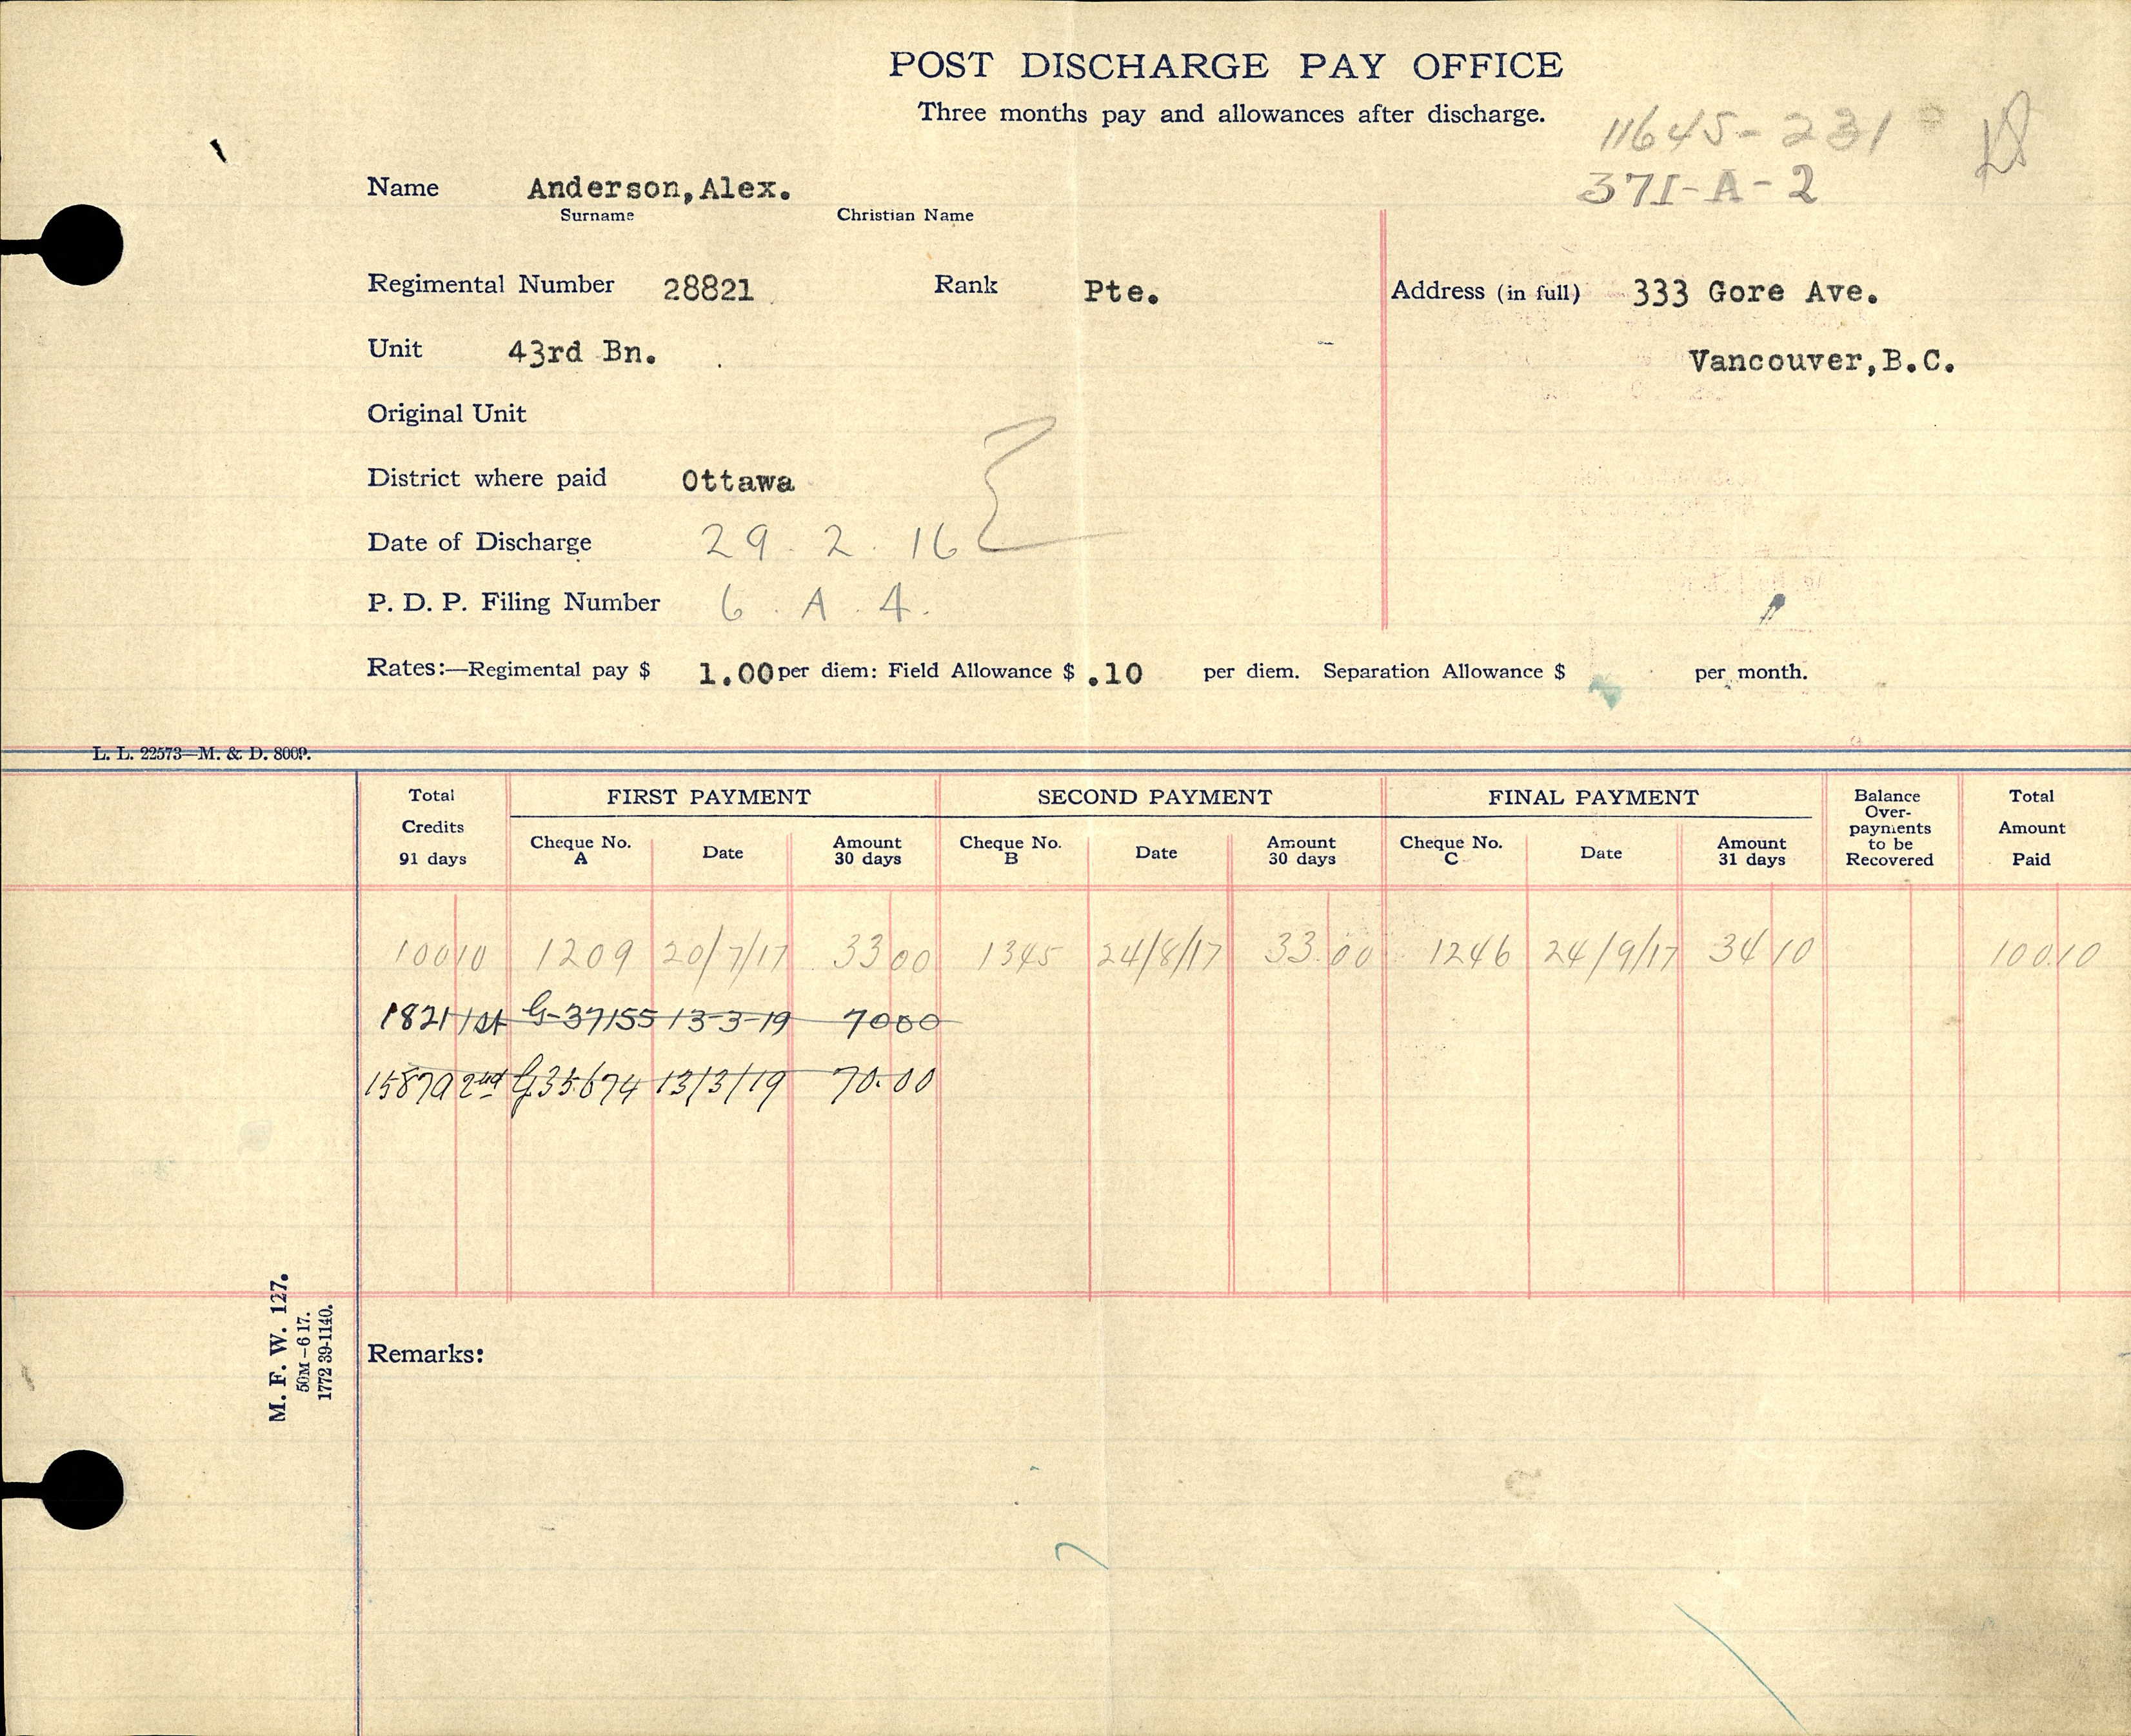 POST DISCHARGE PAY OFFICE
Three months pay and allowances after discharge.
11645-231
371-A-2
Name Anderson, Alex.
Surname Christian Name
Regimental Number 28821 Rank Pte. Address (in full) 333 Gore Ave.
Unit 43rd Bn.
Vancouver, B.C.
Original Unit
District where paid Ottawa
Date of Discharge 29. 2. 16
P. D. P. Filing Number 6. A. 4.
Rates:—Regimental pay $ 1.00 per diem: Field Allowance $ .10 per diem. Separation Allowance $ per month.
L. L. 22573—M. & D. 8009.
Total Credits 91 days
FIRST PAYMENT
Cheque No. A Date Amount 30 days
SECOND PAYMENT
Cheque No. B Date Amount 30 days
FINAL PAYMENT
Cheque No. C Date Amount 31 days
Balance Over-payments to be Recovered
Total Amount Paid
100 10 1209 20/7/17 33 00 1345 24/8/17 33.00 1246 24/9/17 34 10 100.10
1821 1st G-37155 13-3-19 7000
15879 2nd G35674 13/3/19 70.00
M. F. W. 127.
50M-6 17.
1772 39-1140.
Remarks: